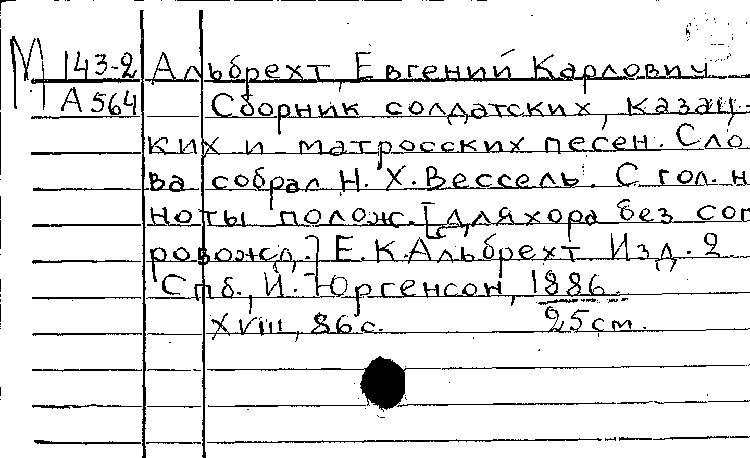 М 143-2 Альбрехт, Евгений Карлович
А 564 Сборник солдатских, казац-
ких и матросских песен. Сло
ва собрал Н. Х. Вессель. С гол. н
ноты полож. [для хора без соп
ровожд.] Е. К. Альбрехт Изд. 2
Спб., И. Юргенсон, 1886.
XVIII, 86 с. 25 см.